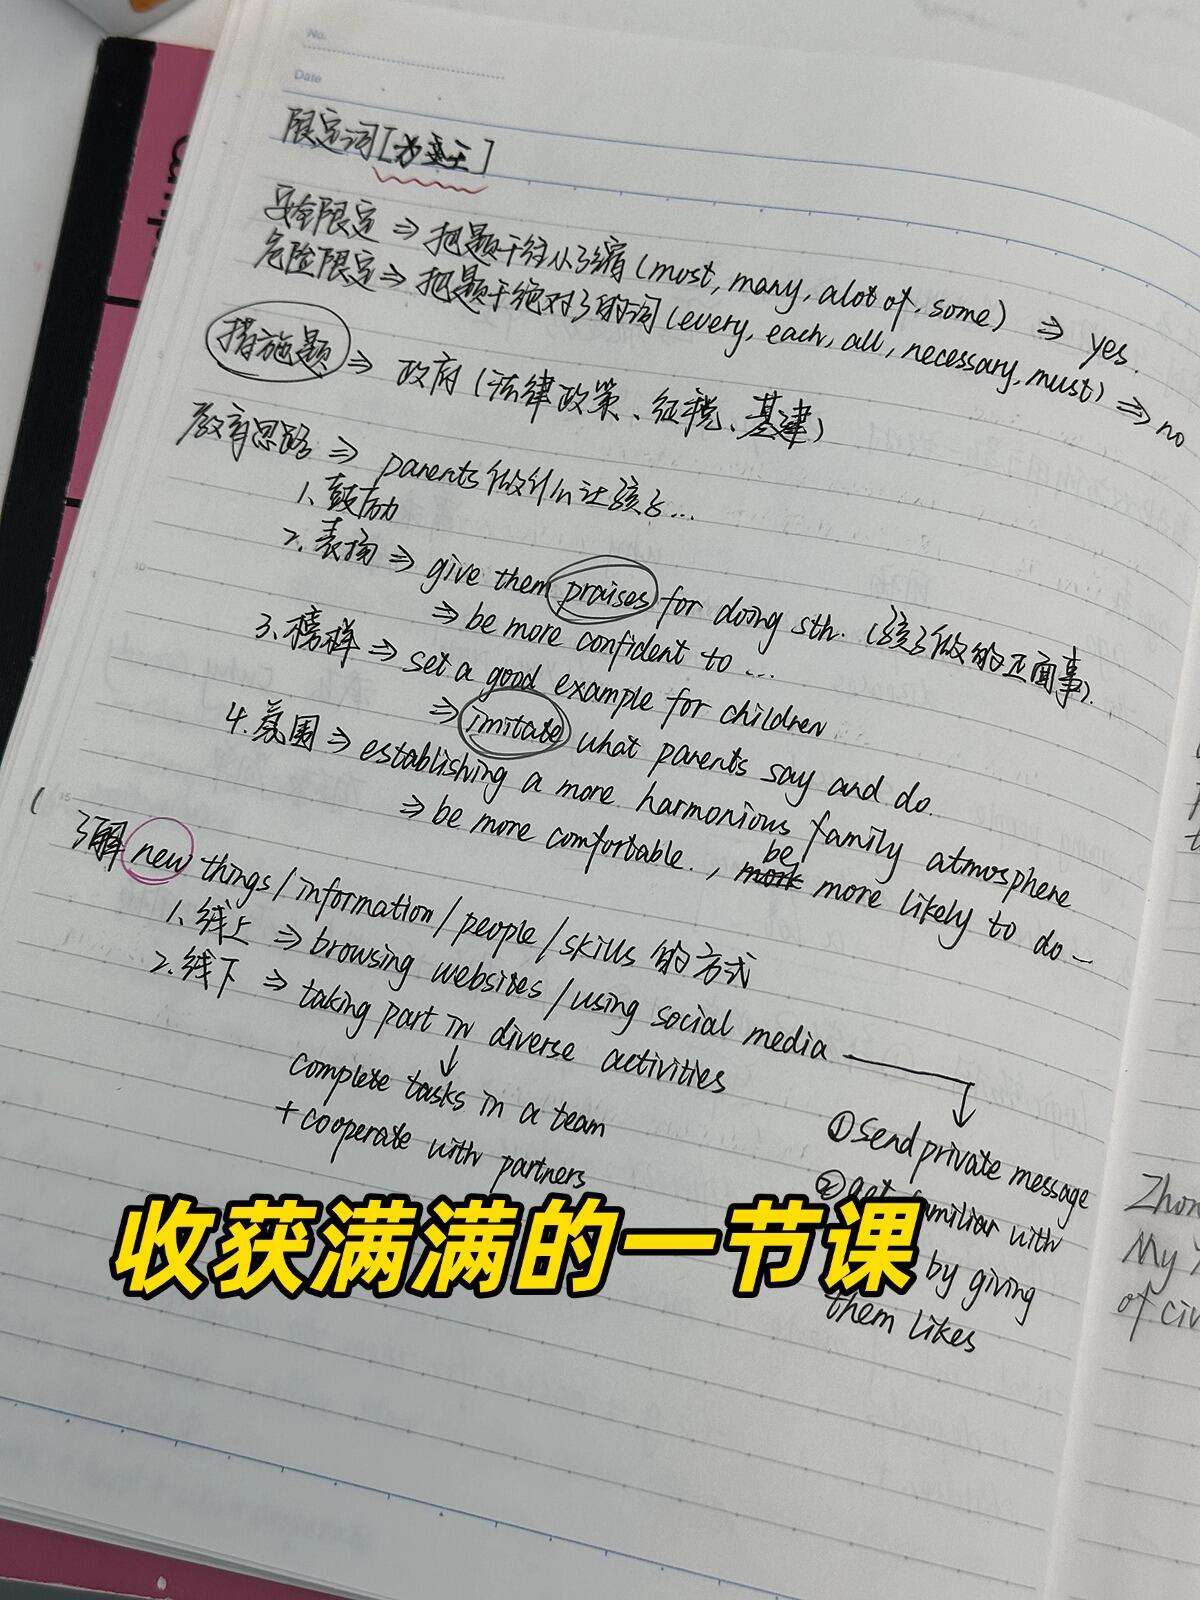 No.
Date
限定词[
安全限定 ⇒ 把题干往小了缩(most, many, a lot of, some) ⇒ yes.
危险限定 ⇒ 把题干绝对了的词(every, each, all, necessary, must) ⇒ no
措施题 ⇒ 政府(法律政策、征税、基建)
教育思路 ⇒ parents做什么让孩子...
1. 鼓励
2. 表扬 ⇒ give them praises for doing sth. (孩子做的正面事).
⇒ be more confident to ...
3. 榜样 ⇒ set a good example for children
⇒ imitate what parents say and do.
4. 氛围 ⇒ establishing a more harmonious family atmosphere
⇒ be more comfortable., be more likely to do –
了解 new things/information/people/skills 的方式
1. 线上 ⇒ browsing websites/using social media
2. 线下 ⇒ taking part in diverse activities
↓
complete tasks in a team
+ cooperate with partners
① send private message
② get familiar with
by giving
them likes
收获满满的一节课
My
of